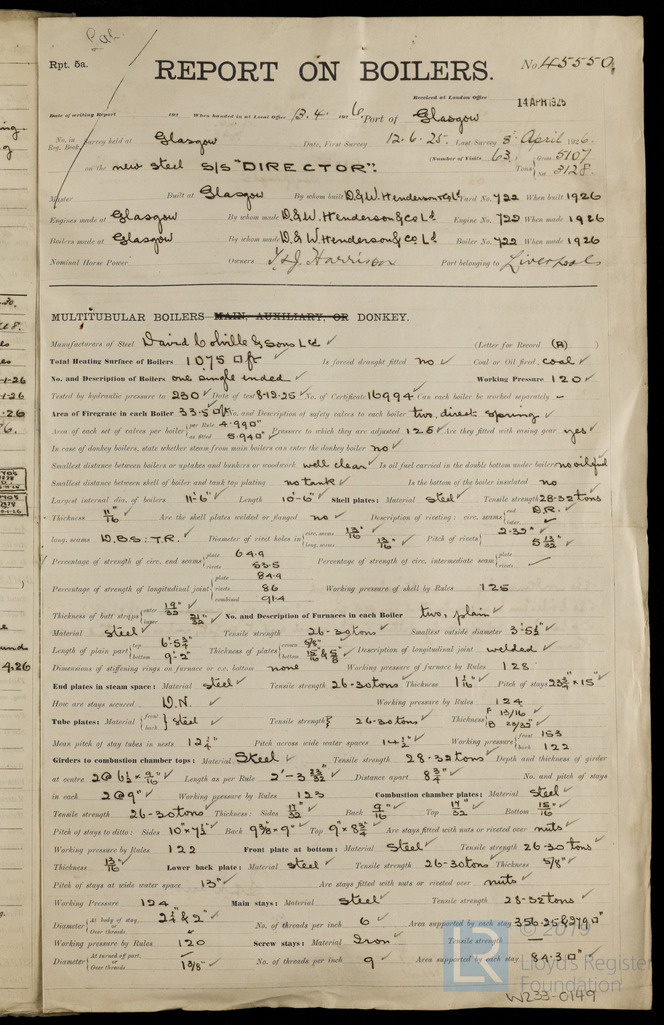 Rpt. 5a.
REPORT ON BOILERS.
No. 45550
Received at London Office
14 APR 1926
Date of writing Report 192 When handed in at Local Office 13.4. 1926 Port of Glasgow
No. in Reg. Book Survey held at Glasgow Date, First Survey 12.6.25. Last Survey 8th April 1926.
on the new steel S/S "DIRECTOR". (Number of Visits 63) Gross 5107
Tons Net 3128
Master Built at Glasgow By whom built D. & W. Henderson & Co Ld Yard No. 722 When built 1926
Engines made at Glasgow By whom made D. & W. Henderson & Co Ld Engine No. 722 When made 1926
Boilers made at Glasgow By whom made D. & W. Henderson & Co Ld Boiler No. 722 When made 1926
Nominal Horse Power Owners T & J. Harrison Port belonging to Liverpool
MULTITUBULAR BOILERS MAIN, AUXILIARY, OR DONKEY.
Manufacturers of Steel David Colville & Sons Ld (Letter for Record (A) )
Total Heating Surface of Boilers 1075 □ft Is forced draught fitted no Coal or Oil fired coal
No. and Description of Boilers one single ended Working Pressure 120
Tested by hydraulic pressure to 230 Date of test 8.12.25 No. of Certificate 16994 Can each boiler be worked separately -
Area of Firegrate in each Boiler 33.5 □ft No. and Description of safety valves to each boiler two, direct spring
Area of each set of valves per boiler per Rule 4.990" as fitted 5.940" Pressure to which they are adjusted 125 Are they fitted with easing gear yes
In case of donkey boilers, state whether steam from main boilers can enter the donkey boiler no
Smallest distance between boilers or uptakes and bunkers or woodwork well clear Is oil fuel carried in the double bottom under boilers no oil fuel
Smallest distance between shell of boiler and tank top plating no tank Is the bottom of the boiler insulated no
Largest internal dia. of boilers 11'-6" Length 10'-6" Shell plates: Material Steel Tensile strength 28-32 tons
Thickness 11/16" Are the shell plates welded or flanged no Description of riveting: circ. seams end D.R. inter.
long. seams D.B.S: T.R. Diameter of rivet holes in circ. seams 13/16" long. seams 13/16" Pitch of rivets 2.32" 5 13/32"
Percentage of strength of circ. end seams plate 64.9 rivets 53.5 Percentage of strength of circ. intermediate seam plate rivets
Percentage of strength of longitudinal joint plate 84.9 rivets 86 combined 91.4 Working pressure of shell by Rules 125
Thickness of butt straps outer 19/32" inner 21/32" No. and Description of Furnaces in each Boiler two, plain
Material Steel Tensile strength 26-30 tons Smallest outside diameter 3'-5½"
Length of plain part top 6'-5¾" bottom 9'-2" Thickness of plates crown 5/8" bottom Description of longitudinal joint welded
Dimensions of stiffening rings on furnace or c.c. bottom none Working pressure of furnace by Rules 128
End plates in steam space: Material Steel Tensile strength 26-30 tons Thickness 1 1/16" Pitch of stays 23¾" × 15"
How are stays secured D.N. Working pressure by Rules 124
Tube plates: Material front back Steel Tensile strength 26-30 tons Thickness F 13/16" B 23/32"
Mean pitch of stay tubes in nests 12¼" Pitch across wide water spaces 14½" Working pressure front 153 back 122
Girders to combustion chamber tops: Material Steel Tensile strength 28-32 tons Depth and thickness of girder
at centre 2 @ 6½ × 9/16" Length as per Rule 2'-3 23/32" Distance apart 8¾" No. and pitch of stays
in each 2 @ 9" Working pressure by Rules 123 Combustion chamber plates: Material Steel
Tensile strength 26-30 tons Thickness: Sides 17/32" Back 9/16" Top 17/32" Bottom 15/16"
Pitch of stays to ditto: Sides 10" × 7½" Back 9⅜" × 9" Top 9" × 8¾" Are stays fitted with nuts or riveted over nuts
Working pressure by Rules 122 Front plate at bottom: Material Steel Tensile strength 26-30 tons
Thickness 13/16" Lower back plate: Material Steel Tensile strength 26-30 tons Thickness 5/8"
Pitch of stays at wide water space 13" Are stays fitted with nuts or riveted over nuts
Working Pressure 124 Main stays: Material Steel Tensile strength 28-32 tons
Diameter At body of stay, or Over threads 2¼" & 2" No. of threads per inch 6 Area supported by each stay 356.25 & 279 □"
Working pressure by Rules 120 Screw stays: Material Iron Tensile strength —
Diameter At turned off part, or Over threads 1⅜" No. of threads per inch 9 Area supported by each stay 84.3 □"
© 2019
LR
Lloyd's Register
Foundation
W233-0149